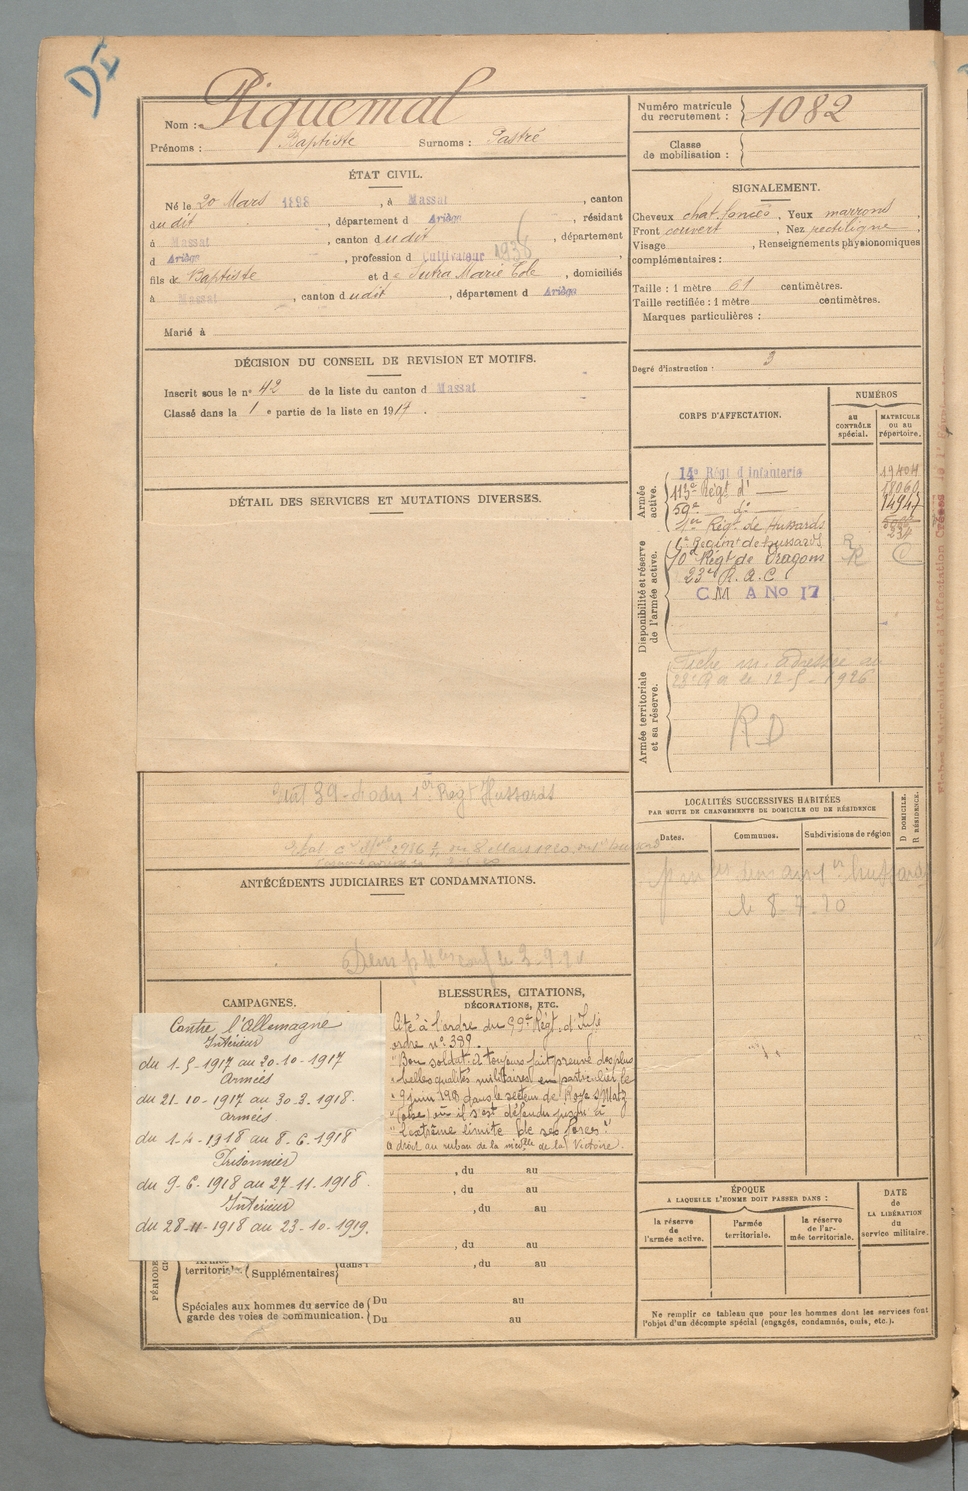 DI
Nom : Piquemal
Prénoms : Baptiste Surnoms : Pastré
Numéro matricule du recrutement : 1082
Classe de mobilisation :
ÉTAT CIVIL.
Né le 20 Mars 1898, à Massat, canton
dudit, département d Ariège, résidant
à Massat, canton dudit, département
d Ariège, profession d Cultivateur 1938
fils de Baptiste et d e Marie , domiciliés
à Massat, canton dudit, département d Ariège
Marié à
SIGNALEMENT.
Cheveux chat. foncés, Yeux marrons,
Front couvert, Nez rectiligne,
Visage , Renseignements physionomiques
complémentaires :
Taille : 1 mètre 61 centimètres.
Taille rectifiée : 1 mètre centimètres.
Marques particulières :
Degré d'instruction : 3
DÉCISION DU CONSEIL DE REVISION ET MOTIFS.
Inscrit sous le n° 42 de la liste du canton d Massat
Classé dans la 1 e partie de la liste en 1917.
DÉTAIL DES SERVICES ET MUTATIONS DIVERSES.
CORPS D'AFFECTATION.
NUMÉROS
au CONTRÔLE spécial.
MATRICULE ou au répertoire.
Armée active.
14e Régt d'Infanterie 19404
113e Régt d° 18060
59e d° 14947
1er Régt de Hussards
Disponibilité et réserve de l'armée active.
1er Régiment de hussards R
10e Régt de Dragons R
23e R.A.C.
C M A No 17
Armée territoriale et sa réserve.
Fiche m. adressée au
23e le 12-5-1926
RD
39 1er Regt Hussards
8 Mars 1920
ANTÉCÉDENTS JUDICIAIRES ET CONDAMNATIONS.
LOCALITÉS SUCCESSIVES HABITÉES
PAR SUITE DE CHANGEMENTS DE DOMICILE OU DE RÉSIDENCE
Dates. Communes. Subdivisions de région
D DOMICILE. R RÉSIDENCE.
1er hussards
le 8-7-20
CAMPAGNES.
Contre l'Allemagne
Intérieur
du 1-5-1917 au 20-10-1917
Armées
du 21-10-1917 au 30-3-1918.
Armées
du 1-4-1918 au 8-6-1918
Prisonnier
du 9-6-1918 au 27-11-1918.
Intérieur
du 28-11-1918 au 23-10-1919.
BLESSURES, CITATIONS,
DÉCORATIONS, ETC.
Cité à l'ordre du 59e Régt. d'Infie
ordre n° 389.
"Bon soldat a toujours fait preuve des plus
"belles qualités militaires en particulier le
"9 juin 1918 dans le secteur de Roye s/Matz
"(Oise) où il s'est défendu jusqu'à
"l'extrême limite de ses forces."
A droit au ruban de la médlle de la Victoire.
, du au
, du au
, du au
, du au
, du au
territoriale. Supplémentaires dans l
Spéciales aux hommes du service de garde des voies de communication. Du au
Du au
ÉPOQUE
A LAQUELLE L'HOMME DOIT PASSER DANS :
la réserve de l'armée active.
l'armée territoriale.
la réserve de l'armée territoriale.
DATE DE LA LIBÉRATION du service militaire.
Ne remplir ce tableau que pour les hommes dont les services font
l'objet d'un décompte spécial (engagés, condamnés, omis, etc.).